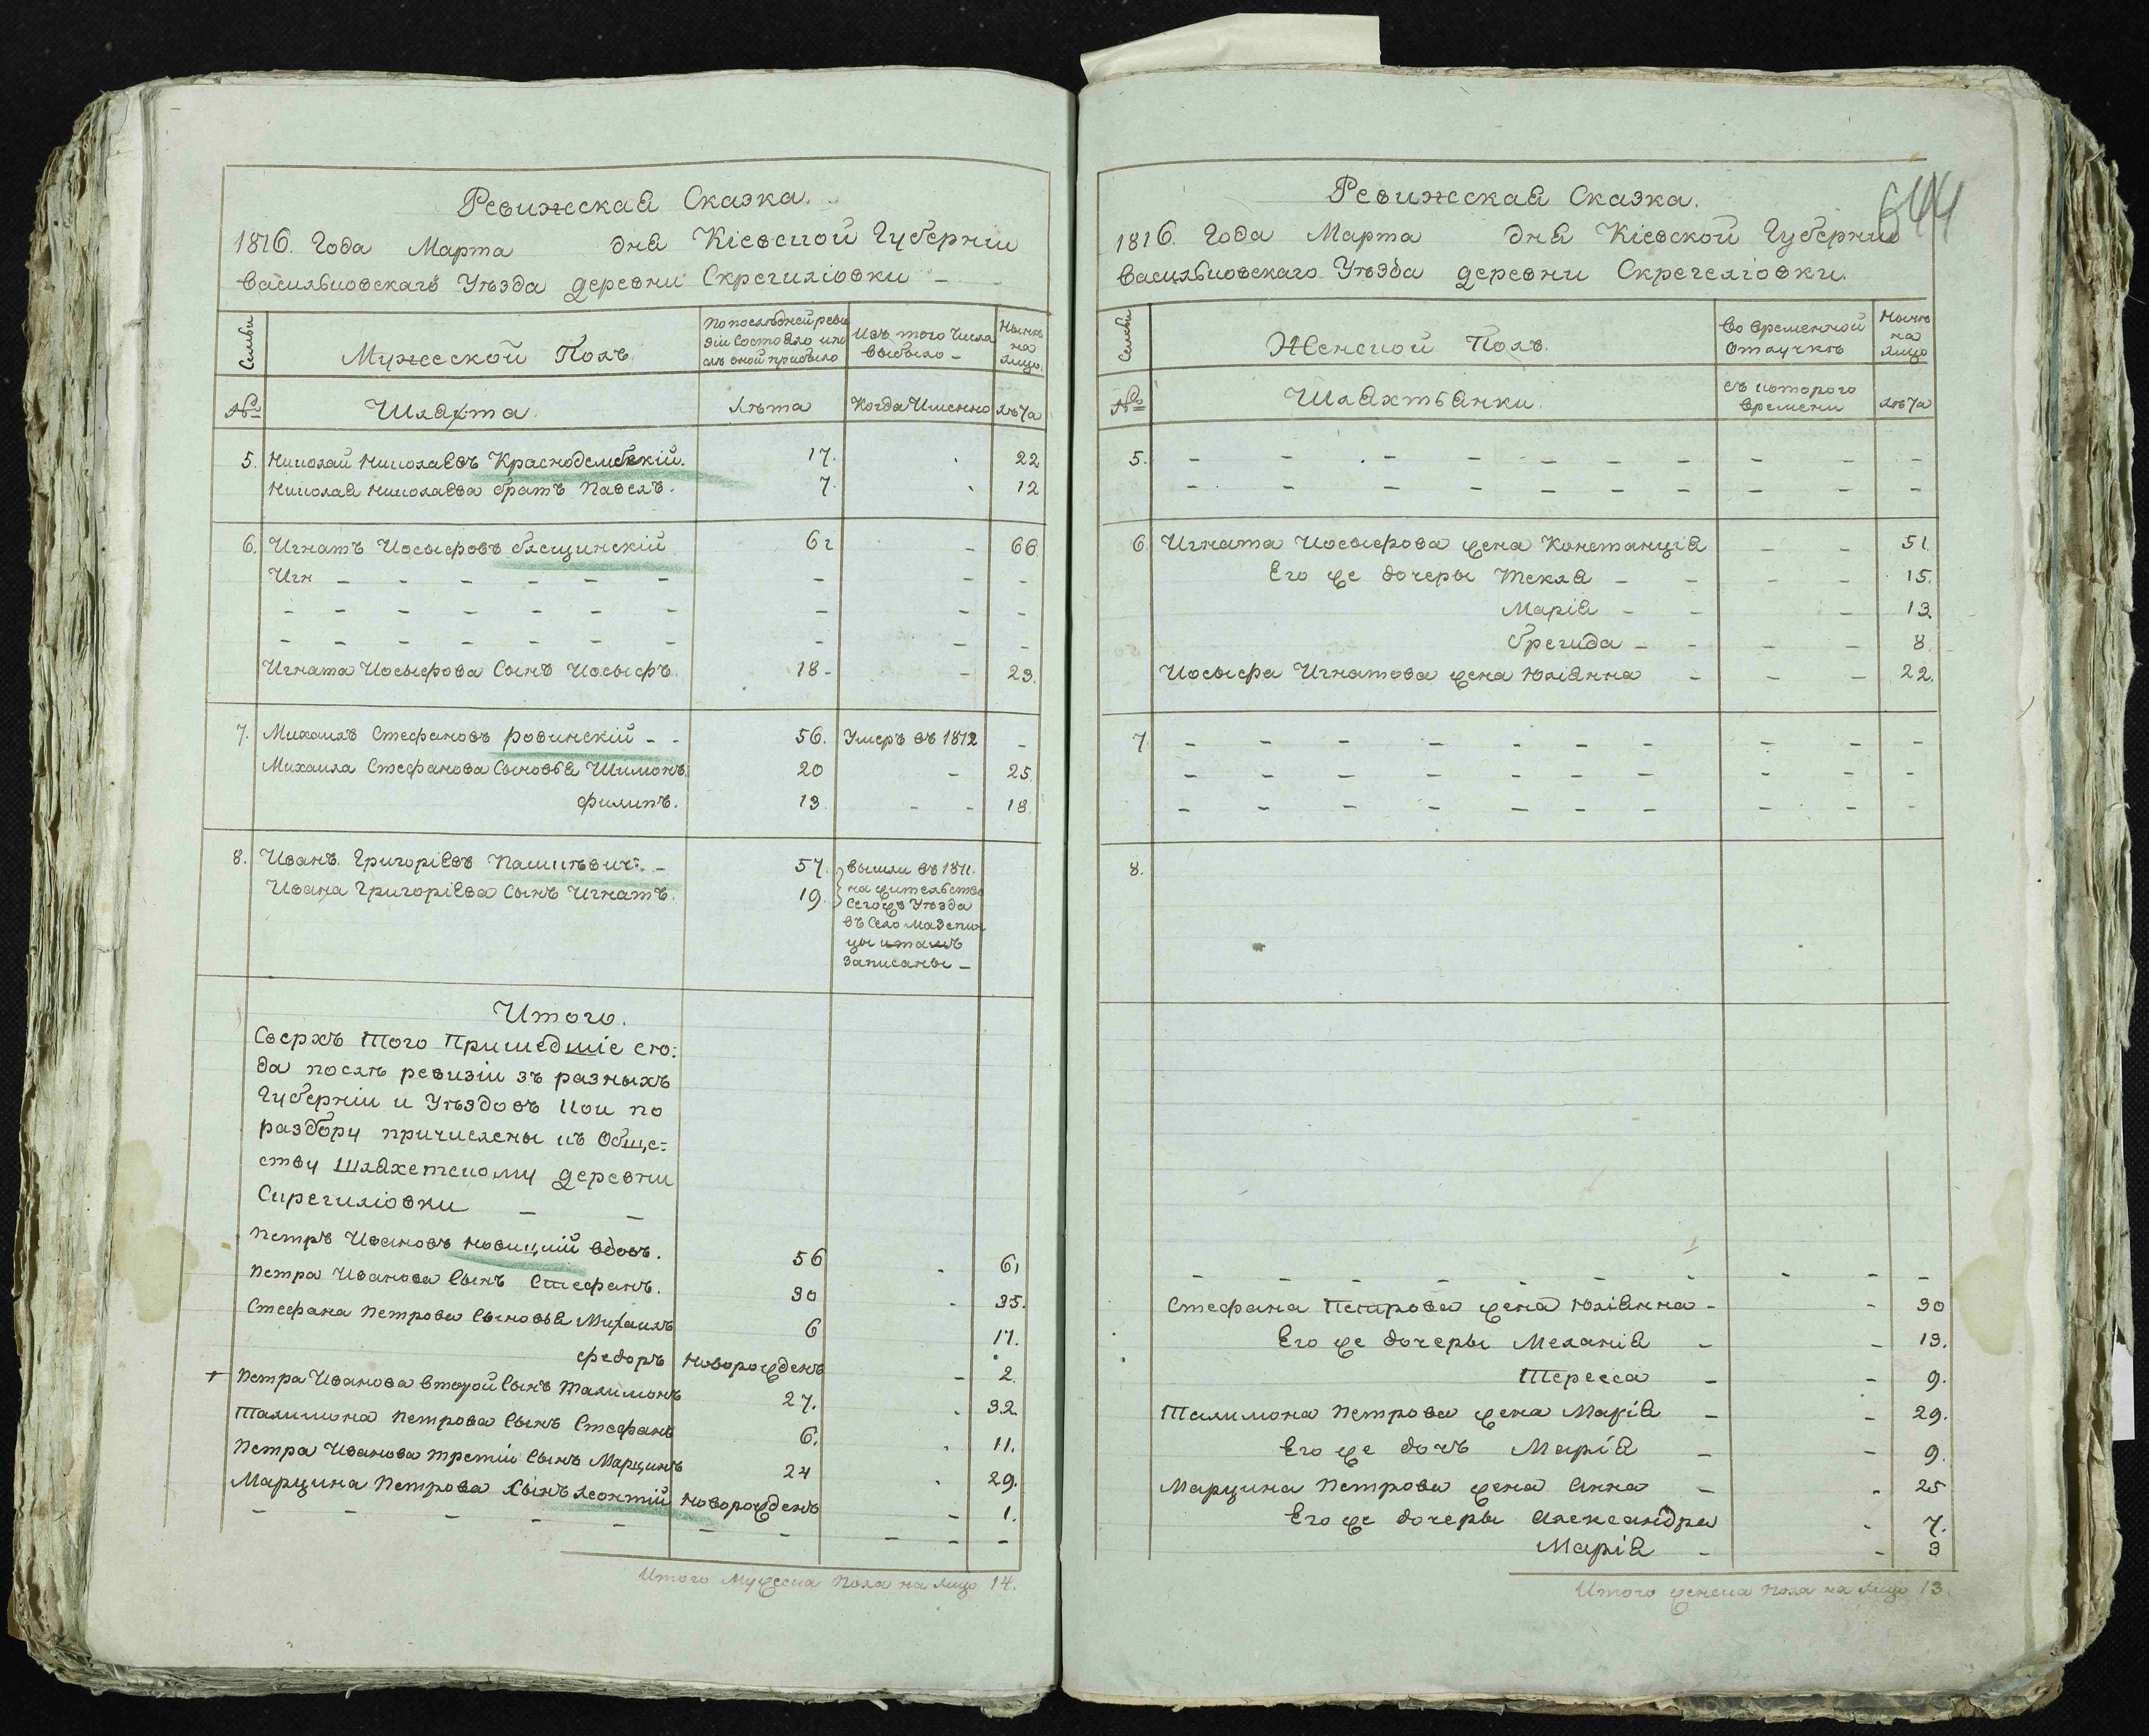 Ревижская Сказка.
1816. Года Марта дня Кіевской Губерніи
Васильковскаго Уѣзда деревни Скрегиліовки —
Семьи
Мужеской Полъ.
По последней реви
зіи состояло и по
слѣ оной прибыло
Изъ того числа
выбыло —
Нынѣ
на
лицо.
№
Шляхта.
Лѣта
Когда Именно
лѣта
5. Николай Николаевъ Краснодембскій. 17. 22
Николая Николаева братъ Павелъ. 7. 12
6. Игнатъ Иосыфовъ блещинскій 61 — 66
Игн — — — — — — — — —
— — — — — — — — — —
— — — — — — — — — —
Игната Иосыфова Сынъ Иосыфъ. 18 — — 23.
7. Михаилъ Стефановъ ровинскій — — 56. Умеръ въ 1812 —
Михаила Стефанова Сыновья Шимонъ. 20 — 25.
филипъ. 13. — — 18.
8. Иванъ Григоріевъ Пашкѣвичъ. — 57.
Ивана Григоріева Сынъ Игнатъ. 19.
вышли въ 1811.
на жительство
Сегожъ Уѣзда
въ Село Мазепин
цы и тамъ
записаны —
Итого.
Сверхъ Того Пришедшіе сю:
да послѣ ревизіи зъ разныхъ
Губерніи и Уѣздовъ кои по
разбору причислены къ Обще=
ству шляхетскому деревни
Скрегиліовки — —
Петръ Ивановъ новицкій вдовъ. 56 — 61
Петра Иванова Сынъ Стефанъ. 30 — 35.
Стефана Петрова Сыновья Михаилъ 6 11.
федоръ новорожденъ — 2.
+ Петра Иванова второй Сынъ Талимонъ 27. 32.
Талимона Петрова Сынъ Стефанъ 6. 11.
Петра Иванова третій Сынъ Марцинъ 24 29.
Марцина Петрова Сынъ леонтій новорожденъ — 1.
— — — — — — — — — —
Итого Мужеска пола на лицо 14.
644
Ревижская Сказка.
1816. Года Марта дня Кіевской Губерніи
Васильковскаго Уѣзда деревни Скрегеліовки.
Семьи
Женской Полъ.
Во временной
отлучкѣ
Нынѣ
на
лицо
№
Шляхтьянки.
съ которого
времени
лѣта
5. — — — — — — — — — —
— — — — — — — — — —
6. Игната Иосыфова жена Констанція — — 51
Его же дочеры Текля — — — — 15.
Марія — — — 13.
бригида — — — — 8.
Иосыфа Игнатова жена Юліянна — — — 22.
7. — — — — — — — — — —
— — — — — — — — — —
— — — — — — — — — —
8.
— — — — — — — — — —
Стефана Петрова жена Юліянна — — 30
Его же дочеры Меланія — — 13.
Тересса — — 9.
Талимона Петрова жена Марія — — 29.
Его же дочъ Марія — — 9.
Марцина Петрова жена Анна — — 25
Его же дочеры Александра — 7.
Марія — — 3
Итого женска пола на лицо 13.